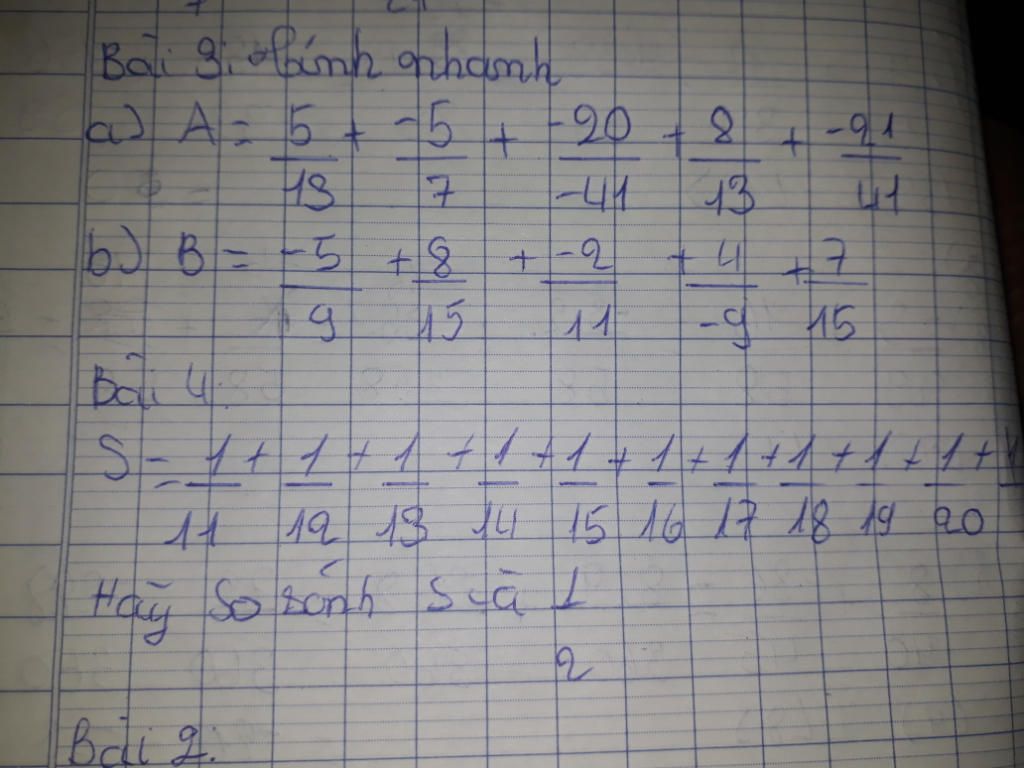 Bài 3: Tính nhanh
a) A = 5/13 + -5/7 + -20/-41 + 8/13 + -21/41
b) B = -5/9 + 8/15 + -2/11 + 4/-9 + 7/15
Bài 4:
S = 1/11 + 1/12 + 1/13 + 1/14 + 1/15 + 1/16 + 1/17 + 1/18 + 1/19 + 1/20 + 1
Hãy so sánh S và 1/2
Bài 2: